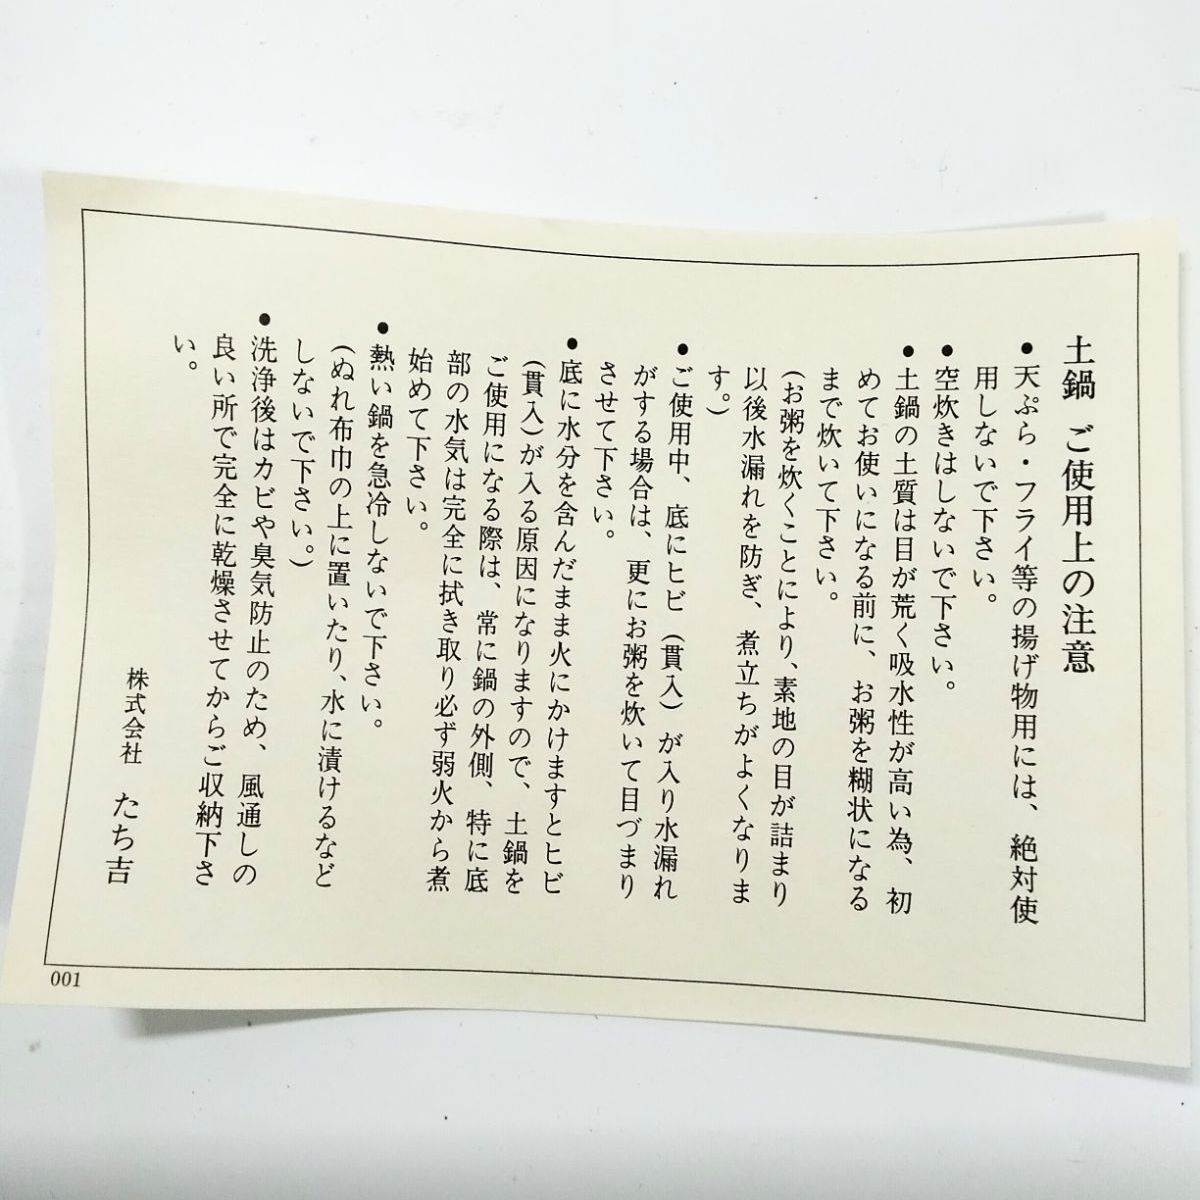 土鍋 ご使用上の注意
●天ぷら・フライ等の揚げ物用には、絶対使
用しないで下さい。
●空炊きはしないで下さい。
●土鍋の土質は目が荒く吸水性が高い為、初
めてお使いになる前に、お粥を糊状になる
まで炊いて下さい。
(お粥を炊くことにより、素地の目が詰まり
以後水漏れを防ぎ、煮立ちがよくなりま
す。)
●ご使用中、底にヒビ(貫入)が入り水漏れ
がする場合は、更にお粥を炊いて目づまり
させて下さい。
●底に水分を含んだまま火にかけますとヒビ
(貫入)が入る原因になりますので、土鍋を
ご使用になる際は、常に鍋の外側、特に底
部の水気は完全に拭き取り必ず弱火から煮
始めて下さい。
●熱い鍋を急冷しないで下さい。
(ぬれ布巾の上に置いたり、水に漬けるなど
しないで下さい。)
●洗浄後はカビや臭気防止のため、風通しの
良い所で完全に乾燥させてからご収納下さ
い。
株式会社 たち吉
001